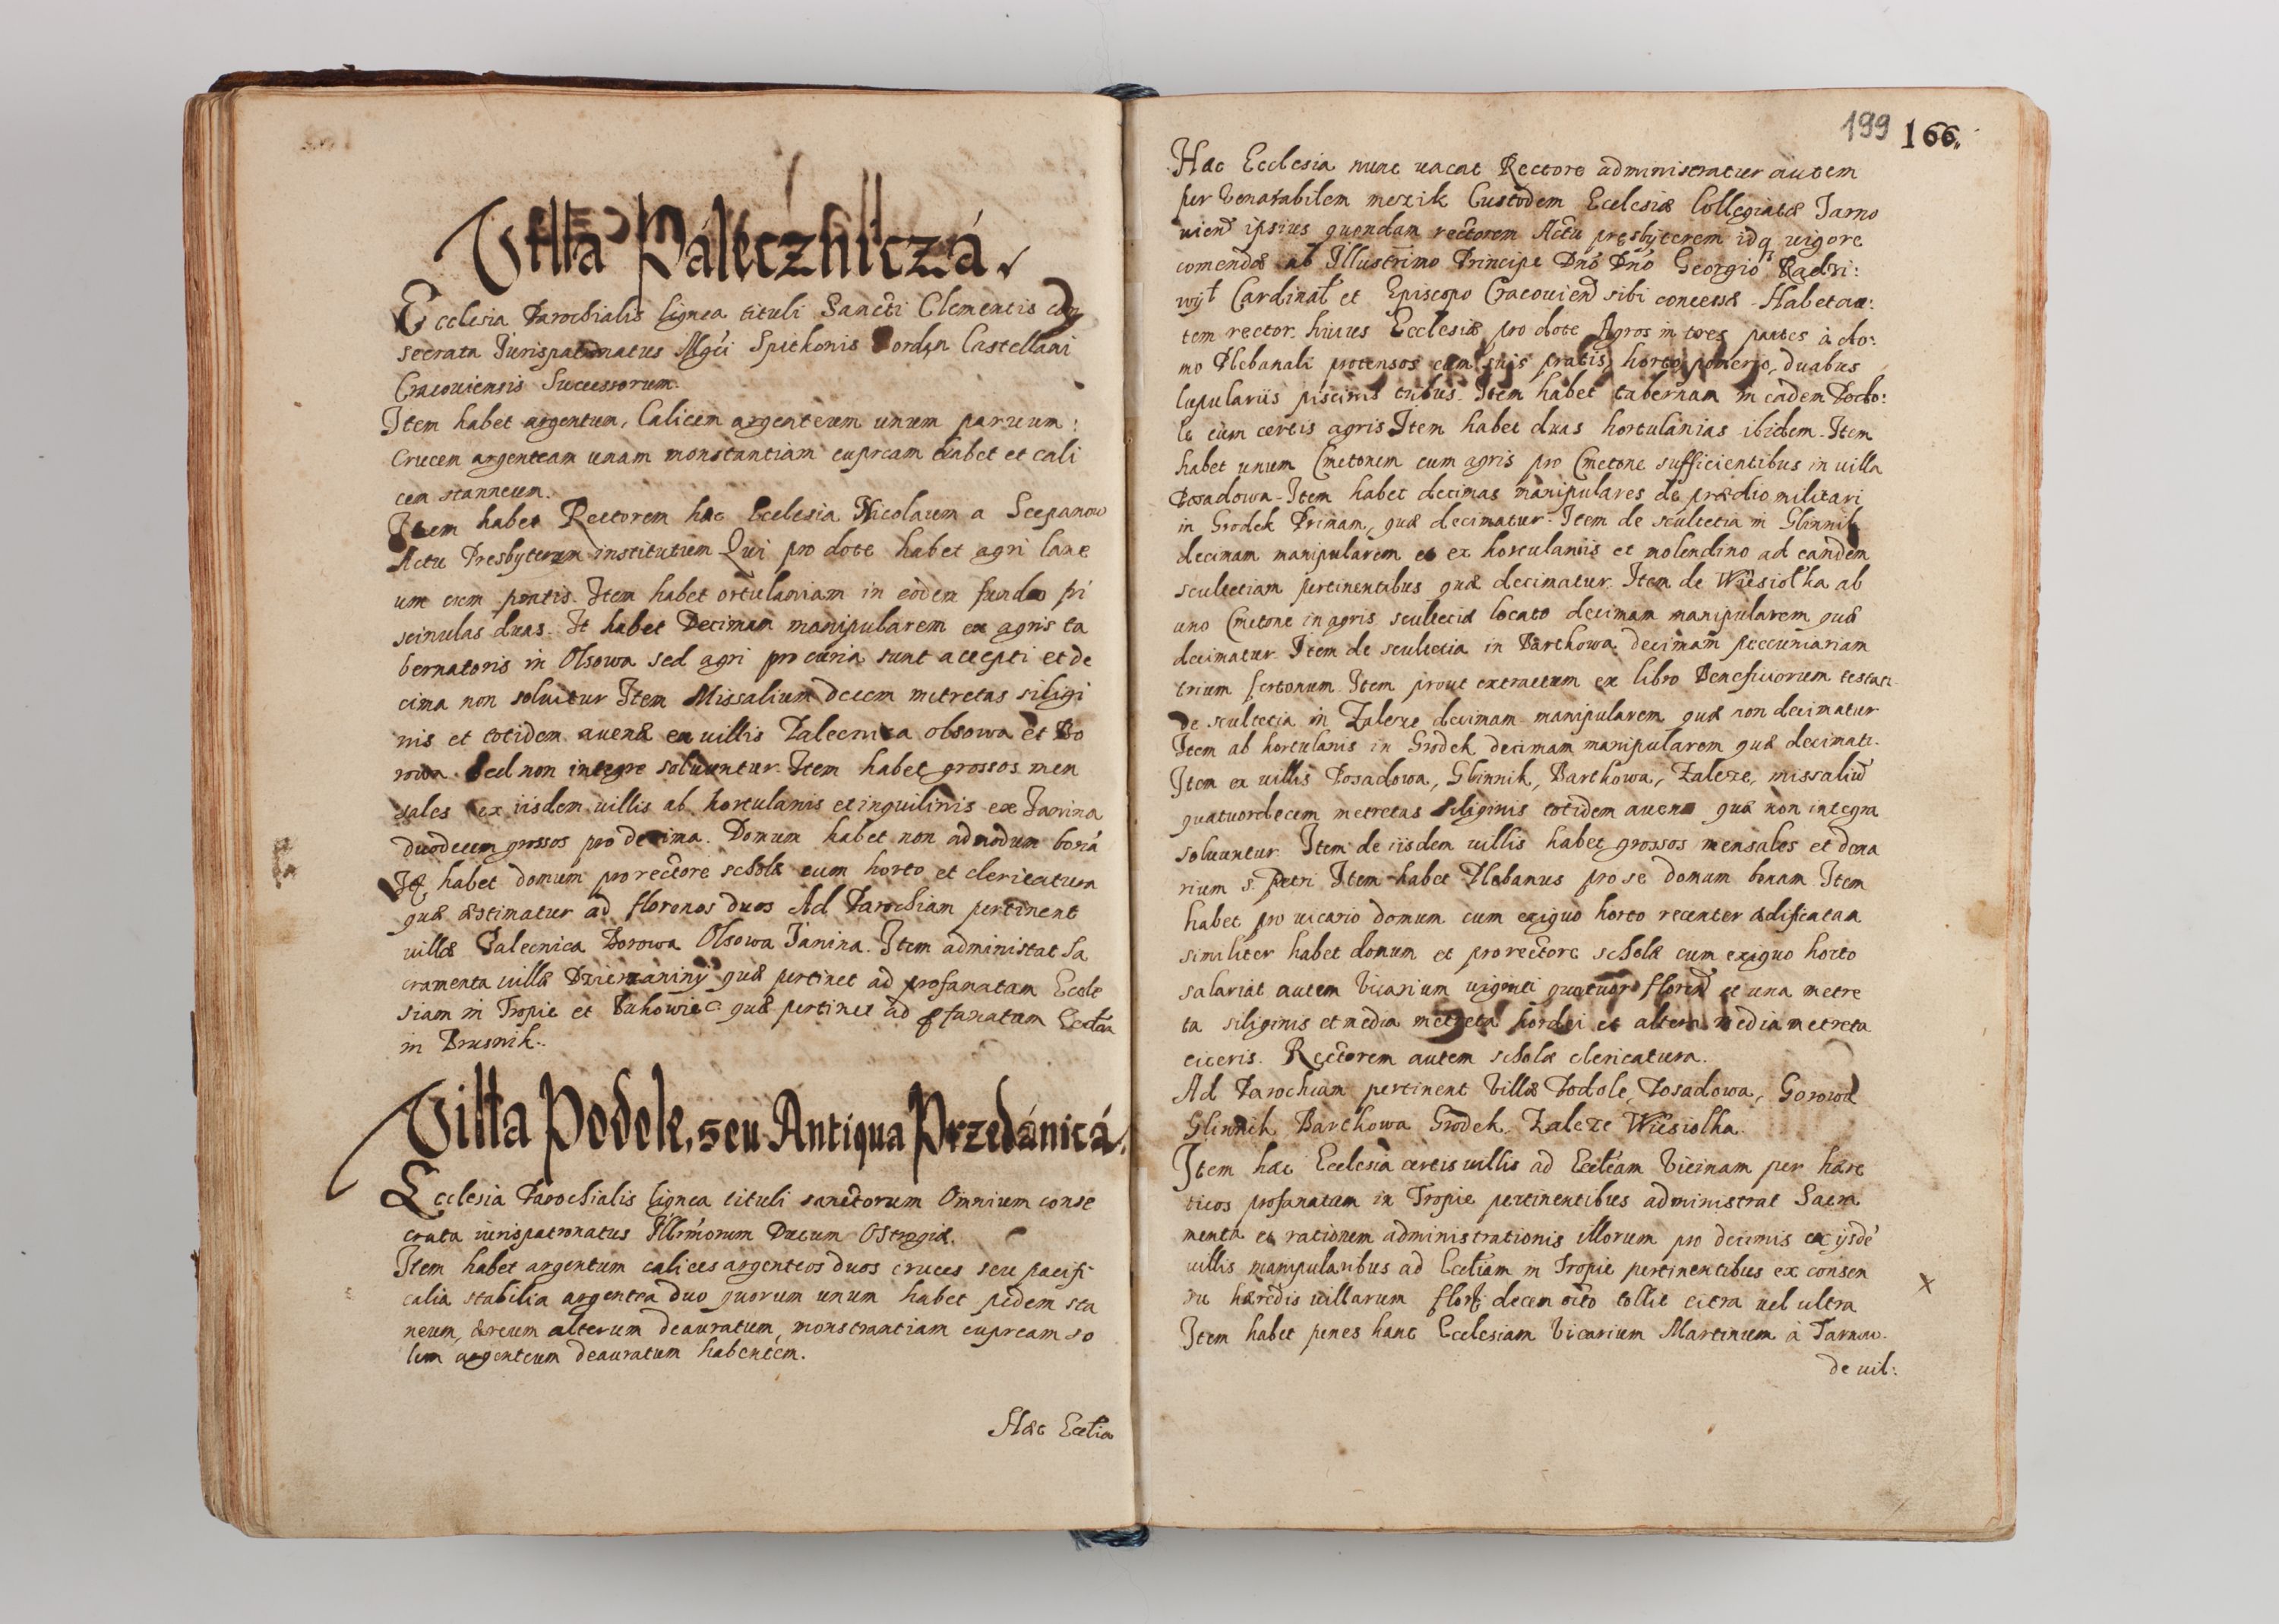 Villa Páleczniczá.
Ecclesia Parochialis lignea tituli Sancti Clementis con
secrata Jurispatronatus Mgci Spithonis Jordan Castellani
Cracouiensis Successorum.
Item habet argentum, Calicem argenteum unum paruum:
Crucem argenteam unam monstrantiam cupream habet et cali
cem stanneum.
Item habet Rectorem hæc Ecclesia Nicolaum a Scepanow
Actu Presbyterum institutum Qui pro dote habet agri lane
um cum pratis. Item habet ortulaniam in eodem fundo pi
scinulas duas. It habet Decimam manipularem ex agris ta
bernatoris in Olsowa sed agri pro curia sunt accepti et de
cima non soluitur Item Missalium decem metretas siligi
nis et totidem auenæ ex villis Palecnica olsowa et Bo
rowa. Sed non integre soluuntur. Item habet grossos men
sales ex iisdem villis ab hortulanis et inquilinis ex Janina
duodecem grossos pro decima. Domum habet non admodum boná
Itẽ habet domum pro rectore scholæ cum horto et clericatura
quæ æstimatur ad florenos duos Ad Parochiam pertinent
villæ Palecnica Borowa Olsowa Janina. Item administrat Sa
cramenta villæ Dzierzaniny quæ pertinet ad profanatam Eccle
siam in Tropie et Bukowiec quæ pertinet ad pfanatam Eccłãa
in Brusnik.
Villa Podole, seu Antiqua Przedánicá.
Ecclesia Parochialis lignea tituli sanctorum Omnium conse
crata iurispatronatus Illrmorum Ducum Ostrogiæ.
Item habet argentum calices argenteos duos cruces seu pacifi
calia stabilia argentea duo quorum unum habet pedem sta
neum, æreum alterum deauratum, monstrantiam cupream so
lum argenteum deauratum habentem.
Hæc Eccłia
199 166.
Hæc Ecclesia nunc uacat Rectore administratur autem
per Venerabilem mezik Custodem Ecclesiæ Collegiatæ Tarno
uien̄ ipsius quondam rectorem Actu presbyterem idq uigore
comendæ ab Illustrimo Principe Dnó Dnó Georgio Radzi:
wył Cardinał et Episcopo Cracouien̄ sibi concessæ Habet au:
tem rector huius Ecclesiæ pro dote Agros in tres partes à do:
mo Plebanali protensos cum suis pratis, horto, pomerio, duabus
lupulariis piscinis tribus. Item habet tabernam in eadem Podo:
le cum certis agris Item habet duas hortulanias ibidem. Item
habet unum Cmetonem cum agris pro Cmetone sufficientibus in uilla
Posadowa. Item habet decimas manipulares de prædio militari
in Grodek Primam, quæ decimatur. Item de scultetia in Glinnik
decimam manipularem et ex hortulaniis et molendino ad eandem
scultetiam pertinentibus quæ decimatur. Item de Wiesiołka ab
uno Cmetone in agris scultetiæ locato decimam manipularem quæ
decimatur Item de scultetia in Barthowa decimam peccuniariam
trium fertonum. Item prout extractum ex libro Beneficiorum testat.
De scultetia in Zaleze decimam manipularem quæ non decimatur
Item ab hortulanis in Grodek decimam manipularem quæ decimat.
Item ex uillis Posadowa, Glinnik, Barthowa, Zaleze, missaliũ
quatuordecem metretas siliginis totidem auenæ quæ non integra
soluuntur. Item de iisdem uillis habet grossos mensales et dena
rium s. Petri Item habet Plebanus pro se domum bonam. Item
habet pro uicario domum cum exiguo horto recenter ædificatam
similiter habet domum et pro rectore scholæ cum exiguo horto
salariat autem Vicarium uiginti quatuor floren̄ et una metre
ta siliginis et media metreta hordei et altera media metreta
ciceris. Rectorem autem scholæ clericatura.
Ad Parochiam pertinent Villæ Podole, Posadowa, Gorowa
Glinnik Barthowa Grodek Zaleze Wiesiolka.
Item hæc Ecclesia certis uillis ad Eccłeam Vicinam per hære
ticos profanatam in Tropie pertinentibus administrat Sacra
menta et rationem administrationis illorum pro decimis ex ijsdẽ
uillis manipularibus ad Eccłiam in Tropie pertinentibus ex consen
su hæredis uillarum floŕ decem octo tollit citra uel ultra
Item habet penes hanc Ecclesiam Vicarium Martinum à Tarnow.
de uil: